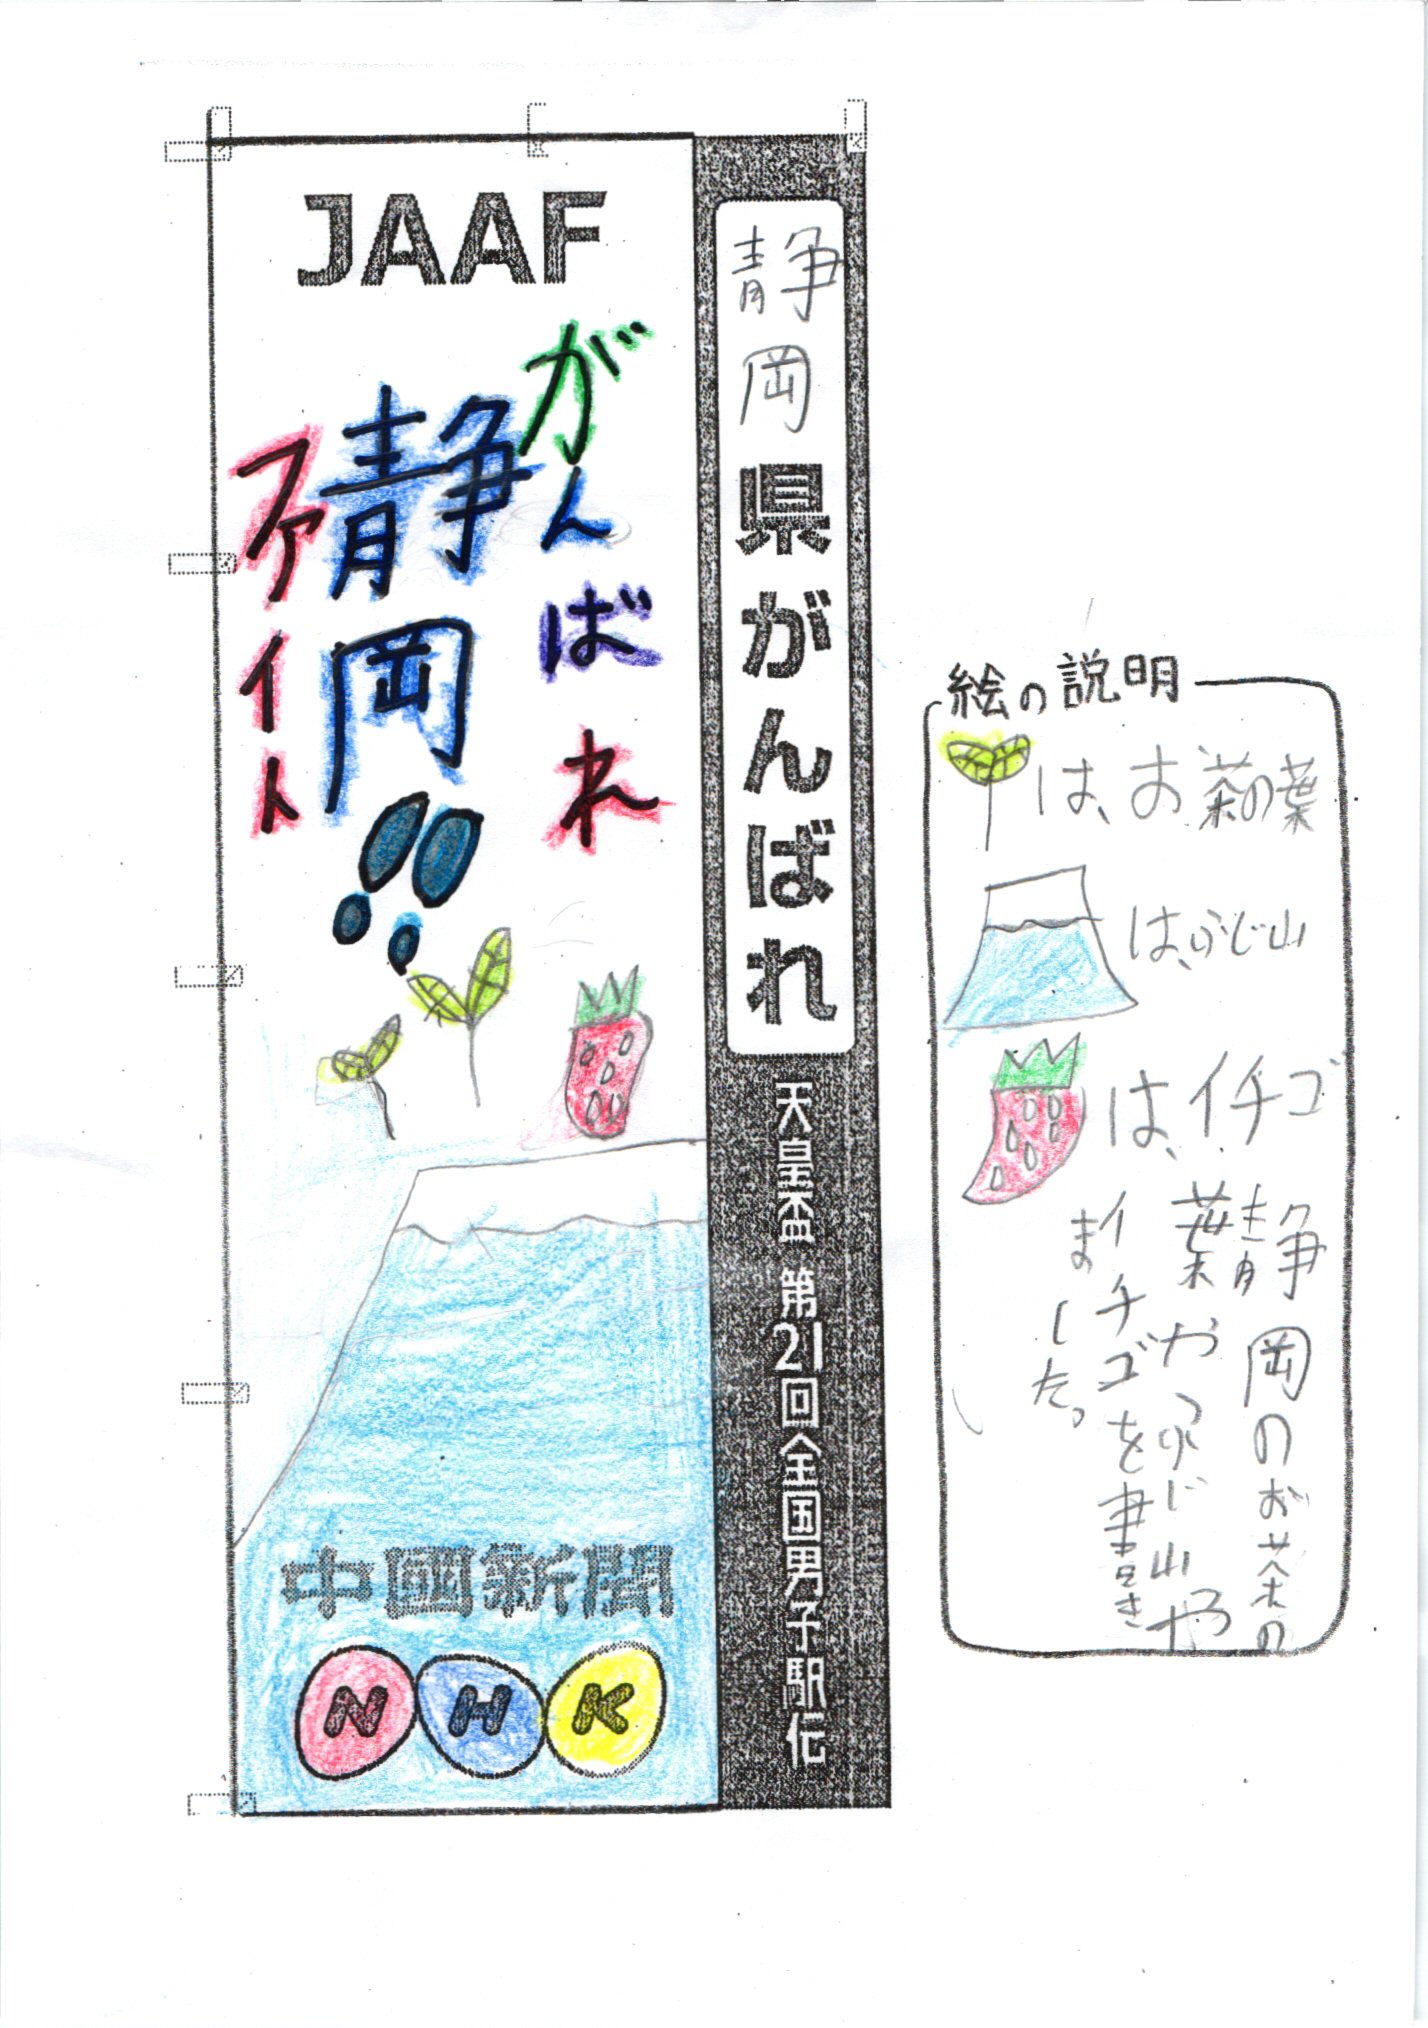 JAAF
がんばれ
静岡!!
ファイト
中國新聞
NHK
静岡県がんばれ
天皇盃 第21回全国男子駅伝
絵の説明
は、お茶の葉
は、ふじ山
は、イチゴ
静岡のお茶の
葉やふじ山や
イチゴを書き
ました。